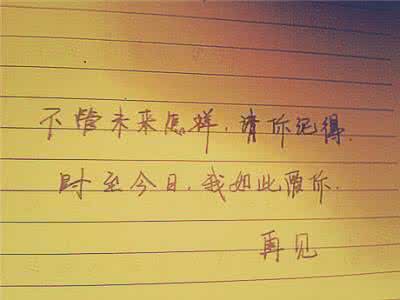 不管未来怎样，请你记得.
时至今日，我如此爱你.
再见